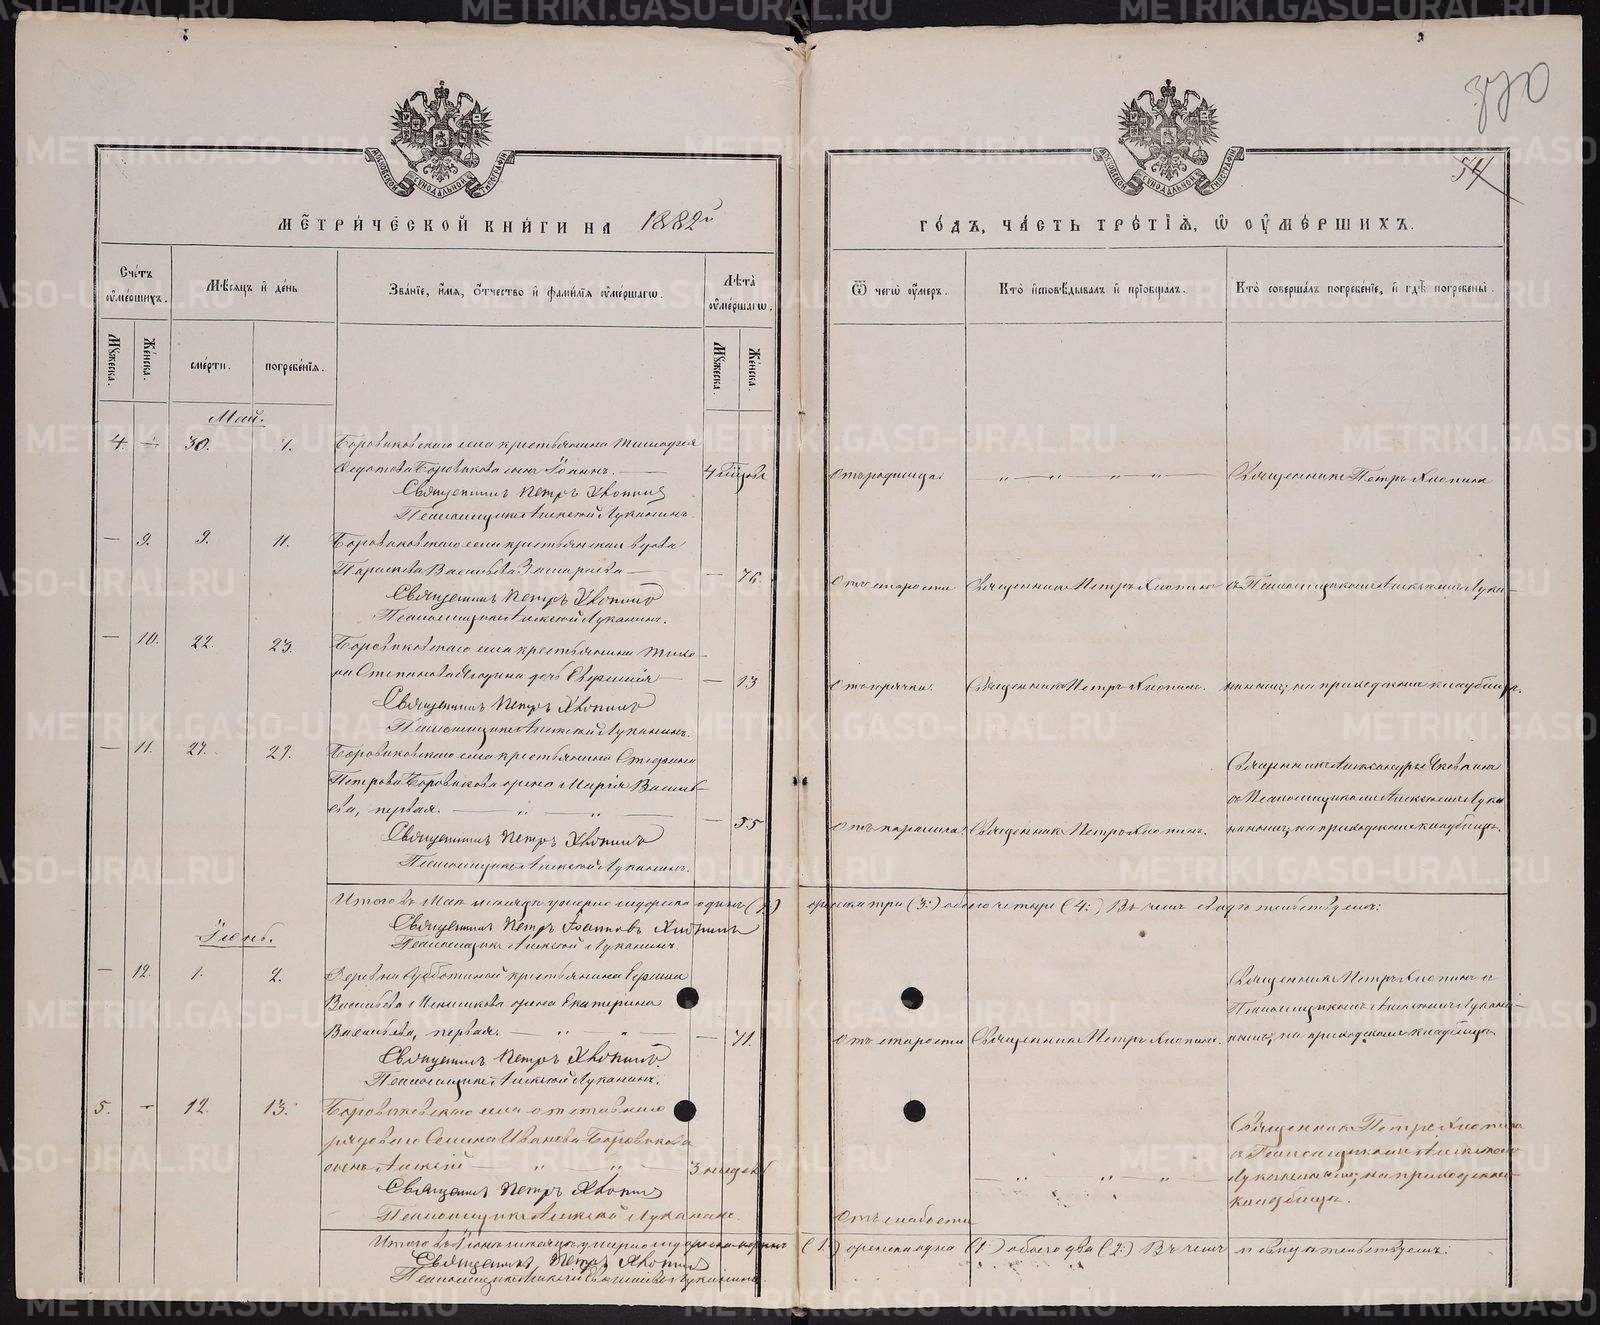 370
54
МОСКОВСКОЙ СѴНОДАЛЬНОЙ ТИПОГРАФІИ
МОСКОВСКОЙ СѴНОДАЛЬНОЙ ТИПОГРАФІИ
МЕТРИЧЕСКОЙ КНИГИ НА 1882й
ГОДЪ, ЧАСТЬ ТРЕТІЯ, Ѡ ОУМЕРШИХЪ.
Счетъ оумершихъ.
Мѣсяцъ и день
Званіе, имя, отчество и фамилія оумершагѡ.
Лѣта оумершагѡ.
Ѿ чегѡ оумеръ.
Кто исповѣдывалъ и пріобщалъ.
Кто совершалъ погребеніе, и гдѣ погребены.
Мужеска.
Женска.
смерти.
погребенія.
Мужеска.
Женска.
Май.
4. 30. 1. Боровиковскаго села крестьянина Тимофея
Федотова Боровикова сынъ Іоаннъ. Отъ родимца. Священникъ Петръ Хлопинъ
Священникъ Петръ Хлопинъ
Псаломщикъ Алексѣй Луканинъ.
— 9. 9. 11. Боровиковскаго села крестьянская вдова
Параскева Васильева — 76. Отъ старости Священникъ Петръ Хлопинъ съ Псаломщикомъ Алексѣемъ Лука-
Священникъ Петръ Хлопинъ
Псаломщикъ Алексѣй Луканинъ.
— 10. 22. 23. Боровиковскаго села крестьянина Тихо-
на Степанова Ягодина дочь Евфимія — 13 Отъ горячки. Священникъ Петръ Хлопинъ. нинымъ, на приходскомъ кладбищѣ.
Священникъ Петръ Хлопинъ
Псаломщикъ Алексѣй Луканинъ.
— 11. 27. 29. Боровиковскаго села крестьянина Стефана Священникъ Александръ Яковкинъ
Петрова Боровикова жена Марія Василь- съ Псаломщикомъ Алексѣемъ Лука
ева, первая. — 55 Отъ паралича. Священникъ Петръ Хлопинъ. нинымъ, на приходскомъ кладбищѣ.
Священникъ Петръ Хлопинъ
Псаломщикъ Алексѣй Луканинъ.
Итого въ Маѣ мѣсяцѣ умерло мужеска одинъ (1.) женска три (3.) обоего четыре (4.) Въ чемъ и свидѣтельствуемъ:
Священникъ Петръ Іоанновъ Хлопинъ
Псаломщикъ Алексѣй Луканинъ
Іюнь.
— 12. 1. 2. Деревни крестьянина Ефима Священникъ Петръ Хлопинъ съ
Васильева жена Екатерина Псаломщикомъ Алексѣемъ Лукани-
Васильева, первая. — 71. Отъ старости Священникъ Петръ Хлопинъ. нымъ, на приходскомъ кладбищѣ.
Священникъ Петръ Хлопинъ.
Псаломщикъ Алексѣй Луканинъ.
5. — 12. 13. Боровиковскаго села отставнаго Священникъ Петръ Хлопинъ
рядоваго Семена Иванова Боровикова съ Псаломщикомъ Алексѣемъ
сынъ Алексѣй 3 недѣль Луканинымъ, на приходскомъ
Священникъ Петръ Хлопинъ кладбищѣ.
Псаломщикъ Алексѣй Луканинъ. Отъ слабости
Итого въ Іюнѣ мѣсяцѣ умерло мужеска одинъ (1.) женска одна (1.) обоего два (2.) Въ чемъ и свидѣтельствуемъ:
Священникъ Петръ Хлопинъ
Псаломщикъ Алексѣй Луканинъ.
METRIKI.GASO-URAL.RU